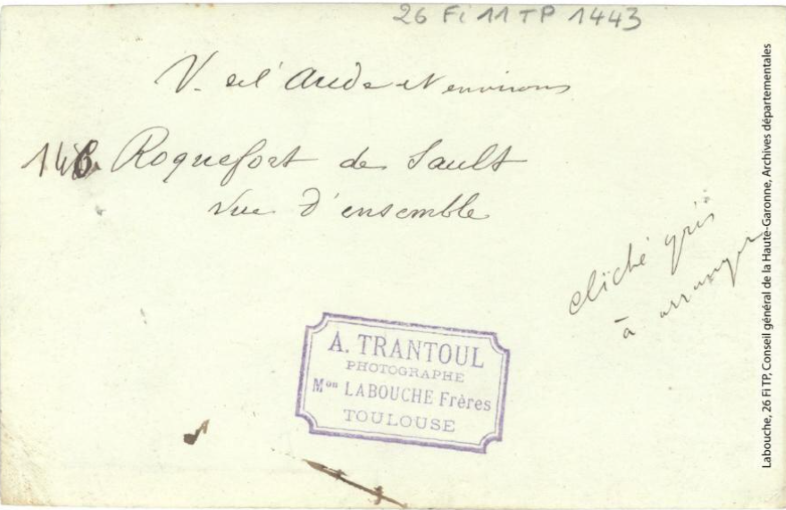 26 Fi 11 TP 1443
V. de l'Aude et environs
146. Roquefort de Sault
Vue d'ensemble
cliché gris
à arranger
A. TRANTOUL
PHOTOGRAPHE
Mᵒⁿ LABOUCHE Frères
TOULOUSE
Labouche, 26 Fi TP, Conseil général de la Haute-Garonne, Archives départementales